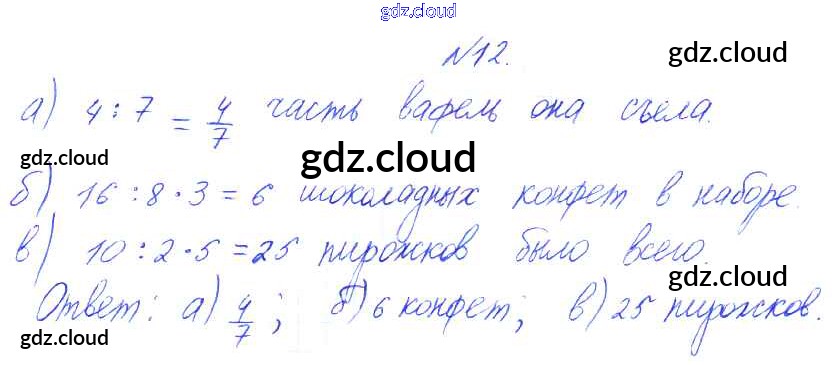 gdz.cloud
№12.
gdz.cloud
а) 4 : 7 = 4/7 часть вафель она съела.
gdz.cloud
gdz.cloud
б) 16 : 8 · 3 = 6 шоколадных конфет в наборе.
в) 10 : 2 · 5 = 25 пирожков было всего.
gdz.cloud
Ответ: а) 4/7; б) 6 конфет; в) 25 пирожков.
gdz.cloud
gdz.cloud